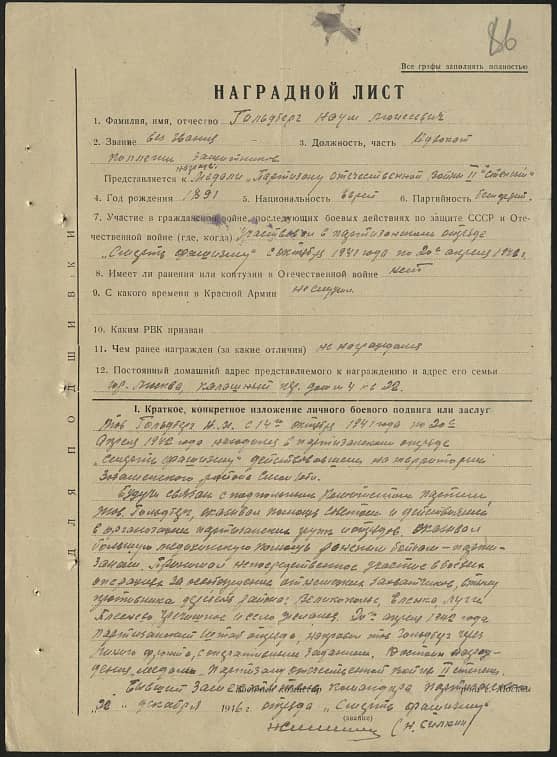 86
Все графы заполнять полностью
НАГРАДНОЙ ЛИСТ
1. Фамилия, имя, отчество Гольдберг Наум Моисеевич
2. Звание без звания 3. Должность, часть Адвокат
коллегии защитников
Представляется к медали „Партизану отечественной войны II степени"
4. Год рождения 1891 5. Национальность еврей 6. Партийность беспарт.
7. Участие в гражданской войне, последующих боевых действиях по защите СССР и Оте-
чественной войне (где, когда) Участвовал в партизанском отряде
„Смерть фашизму" с октября 1941 года по 20 апреля 1942 г.
8. Имеет ли ранения или контузии в Отечественной войне нет
9. С какого времени в Красной Армии не служил
10. Каким РВК призван
11. Чем ранее награжден (за какие отличия) не награждался
12. Постоянный домашний адрес представляемого к награждению и адрес его семьи
гор. Москва, Калашный пер. дом 4 кв 22
ДЛЯ ПОДШИВКИ
I. Краткое, конкретное изложение личного боевого подвига или заслуг
Тов. Гольдберг Н.М. с 14 октября 1941 года по 20
апреля 1942 года находился в партизанском отряде
„Смерть фашизму" действовавшем на территории
района
Будучи связан с подпольным комитетом партии,
тов. Гольдберг, оказывал помощь советом и действиями
в организации партизанских групп и отрядов. Оказывал
большую медицинскую помощь раненым бойцам-парти-
занам. Принимал непосредственное участие в боевых
операциях за освобождение от немецких захватчиков, в тылу
противника района:
и село 20 апреля 1942 года
партизанский штаб отряда, направил тов. Гольдберг через
линию фронта, с оперативным заданием. Достоин награж-
дения медалью „Партизану отечественной войны II степени.
Бывший Заместитель командира партизанского
декабря 1946 г. отряда „Смерть фашизму"
(звание)
(Н. Силкин)